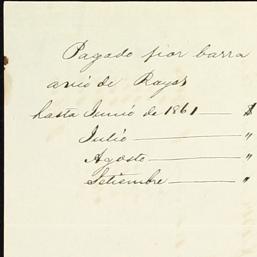 Pagado por barra
avió de Rayas
hasta Junio de 1861 — $
Julio — "
Agosto — "
Setiembre — "